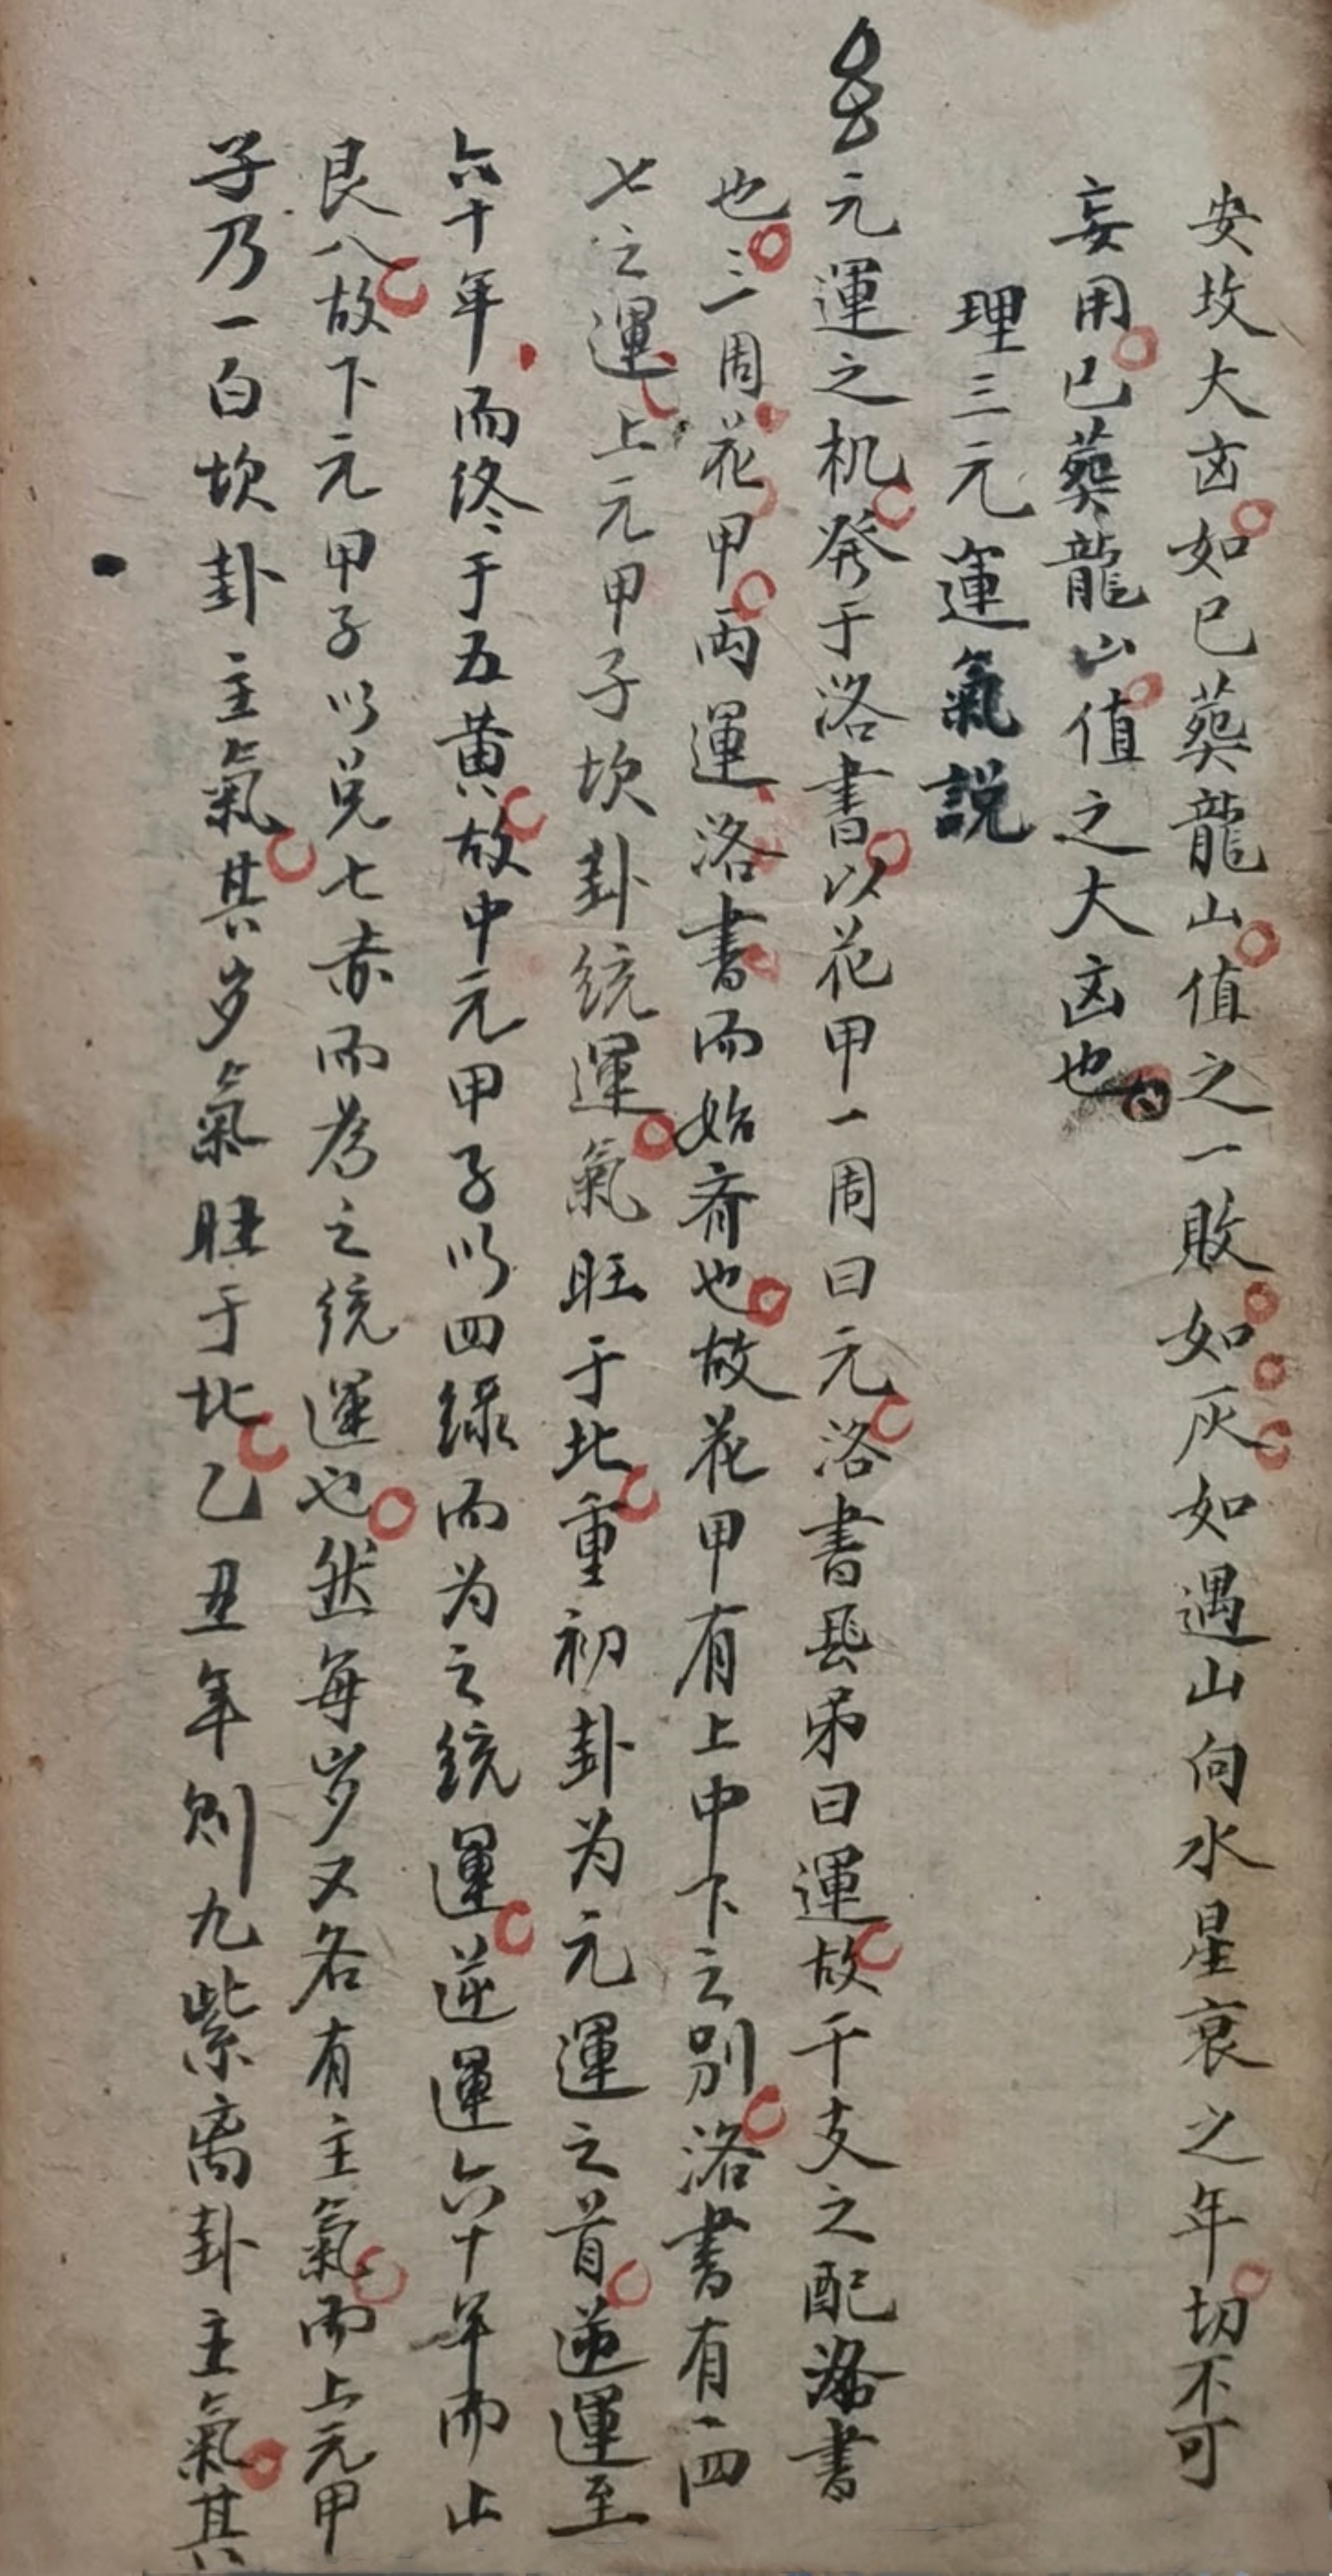 安坟大凶如已葬龍山值之一敗如灰如遇山向水星衰之年切不可
妄用已葬龍山值之大凶也
理三元運氣説
元運之机發于洛書以花甲一周曰元洛書县弟曰運故干支之配洛書
也三周花甲両運洛書而始齐也故花甲有上中下之别洛書有一四
七之運上元甲子坎卦统運氣旺于北重初卦为元運之首逆運至
六十年而终于五黄故中元甲子以四绿而为之统運逆運六十年而止
艮八故下元甲子以兑七赤而为之统運也然每岁又各有主氣而上元甲
子乃一白坎卦主氣其岁氣旺于北乙丑年则九紫离卦主氣其